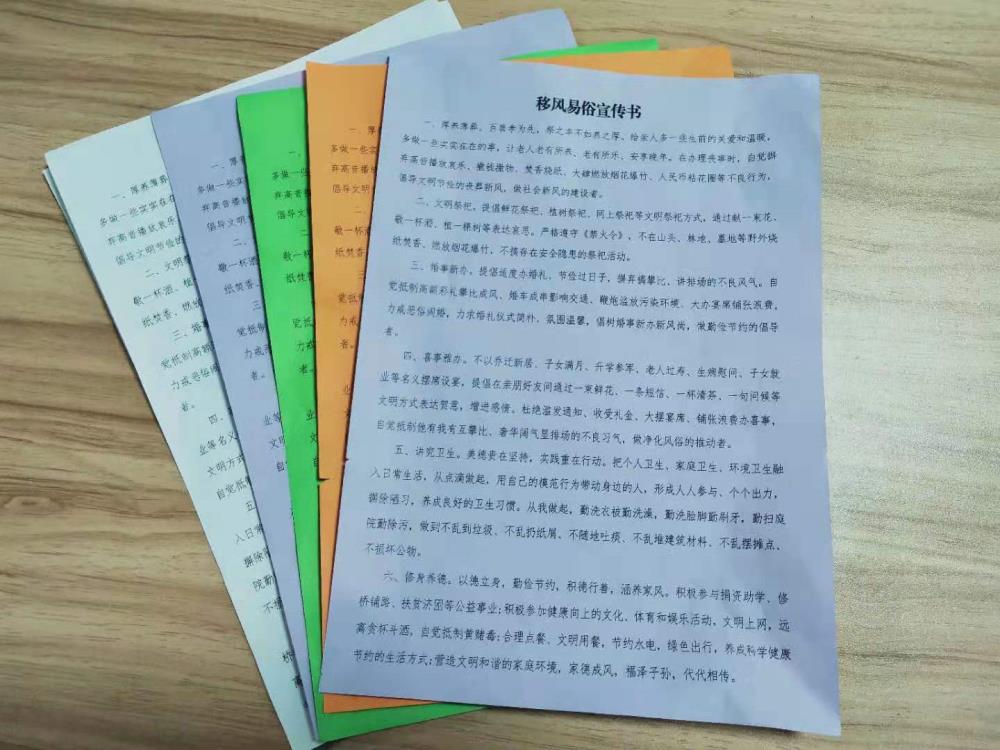 移风易俗宣传书
一、厚养薄葬。百善孝为先，祭之丰不如养之厚，给亲人多一些生前的关爱和温暖，
多做一些实实在在的事，让老人老有所养、老有所乐、安享晚年。在办理丧事时，自觉摒
弃高音播放哀乐、撒钱撒物、焚香烧纸、大肆燃放烟花爆竹、人民币粘花圈等不良行为，
倡导文明节俭的丧葬新风，做社会新风的建设者。
二、文明祭祀。提倡鲜花祭祀、植树祭祀、网上祭祀等文明祭祀方式，通过献一束花、
敬一杯酒、植一棵树等表达哀思。严格遵守《禁火令》，不在山头、林地、墓地等野外烧
纸焚香、燃放烟花爆竹，不搞存在安全隐患的祭祀活动。
三、婚事新办。提倡适度办婚礼、节俭过日子，摒弃搞攀比、讲排场的不良风气。自
觉抵制高额彩礼攀比成风、婚车成串影响交通、鞭炮滥放污染环境、大办宴席铺张浪费，
力戒恶俗闹婚，力求婚礼仪式简朴、氛围温馨，倡树婚事新办新风尚，做勤俭节约的倡导
者。
四、喜事雅办。不以乔迁新居、子女满月、升学参军、老人过寿、生病慰问、子女就
业等名义摆席设宴，提倡在亲朋好友间通过一束鲜花、一条短信、一杯清茶、一句问候等
文明方式表达贺意，增进感情。杜绝滥发通知、收受礼金、大摆宴席、铺张浪费办喜事，
自觉抵制他有我有互攀比、奢华阔气显排场的不良习气，做净化风俗的推动者。
五、讲究卫生。美德贵在坚持，实践重在行动。把个人卫生、家庭卫生、环境卫生融
入日常生活，从点滴做起，用自己的模范行为带动身边的人，形成人人参与、个个出力，
摒除陋习，养成良好的卫生习惯。从我做起，勤洗衣被勤洗澡，勤洗脸脚勤刷牙，勤扫庭
院勤除污，做到不乱到垃圾、不乱扔纸屑、不随地吐痰、不乱堆建筑材料、不乱摆摊点、
不损坏公物。
六、修身养德。以德立身，勤俭节约，积德行善，涵养家风。积极参与捐资助学、修
桥铺路、扶贫济困等公益事业；积极参加健康向上的文化、体育和娱乐活动，文明上网，远
离贪杯斗酒，自觉抵制黄赌毒；合理点餐、文明用餐，节约水电，绿色出行，养成科学健康
节约的生活方式；营造文明和谐的家庭环境，家德成风，福泽子孙，代代相传。